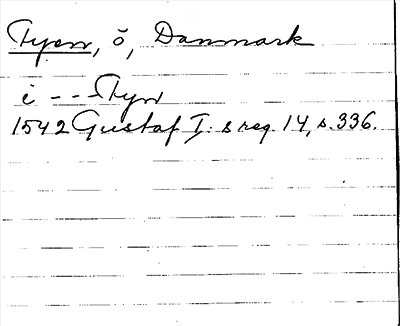 Fyen, ö, Danmark
i - - Fyn
1542 Gustaf I:s reg. 14, s. 336.